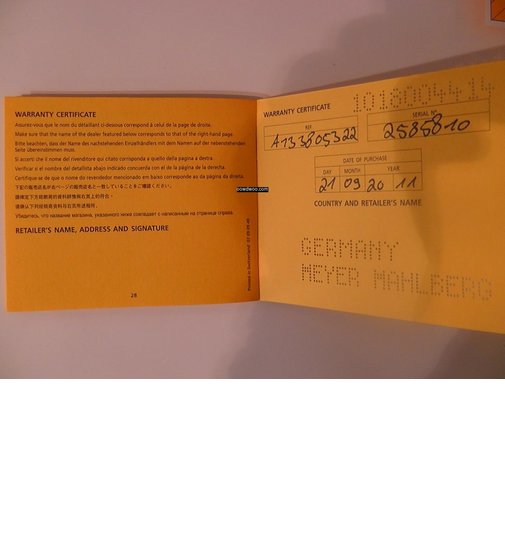 WARRANTY CERTIFICATE
Assurez-vous que le nom du détaillant ci-dessous correspond à celui de la page de droite.
Make sure that the name of the dealer featured below corresponds to that of the right-hand page
Bitte beachten, dass der Name des nachstehenden Einzelhändlers mit dem Namen auf der nebenstehenden
Seite übereinstimmen muss.
Si accerti che il nome del rivenditore qui citato corrisponda a quello della pagina a destra
Verificar si el nombre del detallista abajo indicado concuerda con el de la página de la derecha.
Certifique-se de que o nome do revendedor mencionado em baixo corresponde ao da página da direita.
下記の販売店名が右ページの販売店名と一致していることをご確認ください。
Убедитесь, что название магазина, указанного ниже совпадает с написанным на странице справа.
RETAILER'S NAME, ADDRESS AND SIGNATURE
28
Printed in Switzerland
powdwoo.com
1018004414
WARRANTY CERTIFICATE
REF.
A133805322
SERIAL N°
2585810
DATE OF PURCHASE
DAY MONTH YEAR
21 09 20 11
COUNTRY AND RETAILER'S NAME
GERMANY
MEYER MAHLBERG